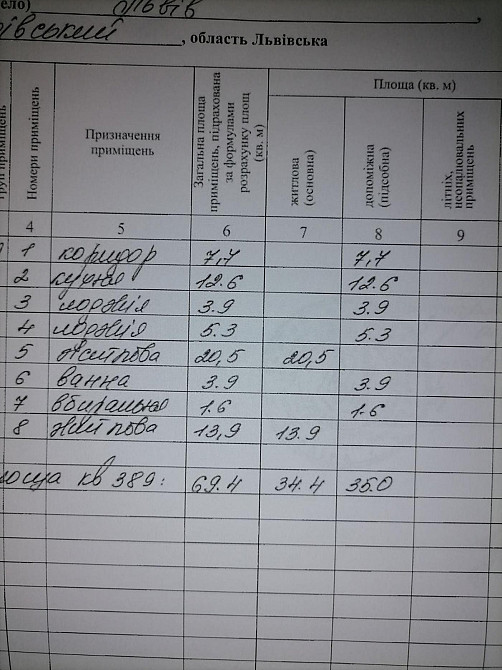 Львів
, область Львівська
Номери приміщень
Призначення приміщень
Загальна площа приміщень, підрахована за формулами розрахунку площ (кв. м)
Площа (кв. м)
житлова (основна)
допоміжна (підсобна)
літніх, неопалювальних приміщень
4 5 6 7 8 9
1 коридор 7,7 7,7
2 кухня 12.6 12.6
3 лоджія 3.9 3.9
4 лоджія 5.3 5.3
5 житлова 20,5 20,5
6 ванна 3.9 3.9
7 вбиральня 1.6 1.6
8 житлова 13,9 13.9
кв 389: 69.4 34.4 35.0